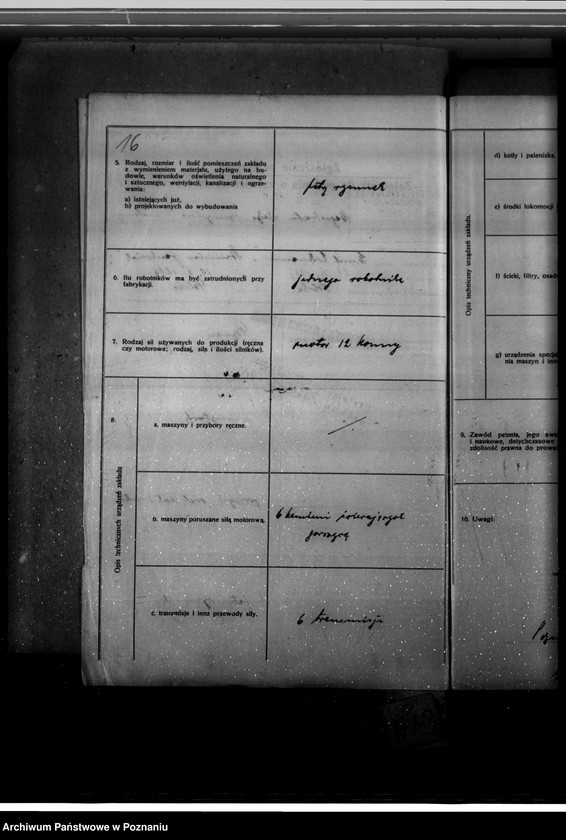 16
5. Rodzaj, rozmiar i ilość pomieszczeń zakładu
z wymienieniem materjału, użytego na bu-
dowie, warunków oświetlenia naturalnego
i sztucznego, wentylacji, kanalizacji i ogrze-
wania:
a) istniejących już,
b) projektowanych do wybudowania
6. Ilu robotników ma być zatrudnionych przy
fabrykacji.
jednego robotnika
7. Rodzaj sił używanych do produkcji (ręczna
czy motorowa; rodzaj, siła i ilości silników).
motor 12 konny
8.
Opis technicznych urządzeń zakładu
a. maszyny i przybory ręczne.
b. maszyny poruszane siłą motorową.
6
c. transmisje i inne przewody siły.
6 transmisje
Opis techniczny urządzeń zakładu.
d) kotły i paleniska.
e) środki lokomocji
f) ścieki, filtry, osad
g) urządzenia specja
nia maszyn i inn
9. Zawód petenta, jego
i naukowe, dotychczasowe
zdolność prawna do prowa
10. Uwagi:
Archiwum Państwowe w Poznaniu